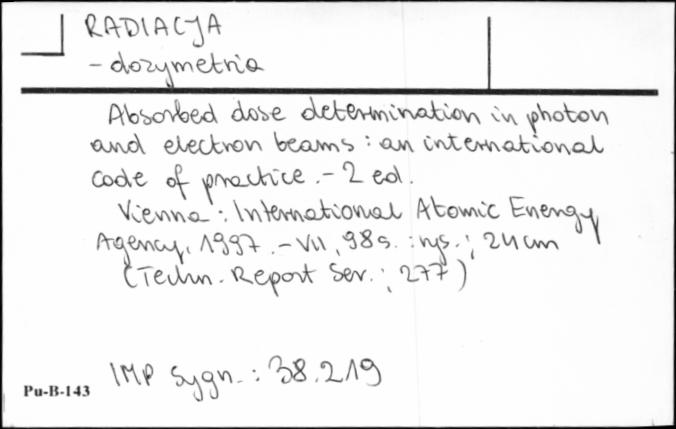 RADIACJA
- dozymetria
Absorbed dose determination in photon
and electron beams : an international
code of practice. - 2 ed.
Vienna : International Atomic Energy
Agency, 1997. - VII, 98 s. : rys. ; 24 cm
(Techn. Report Ser. ; 277)
IMP Sygn. : 38.219
Pu-B-143